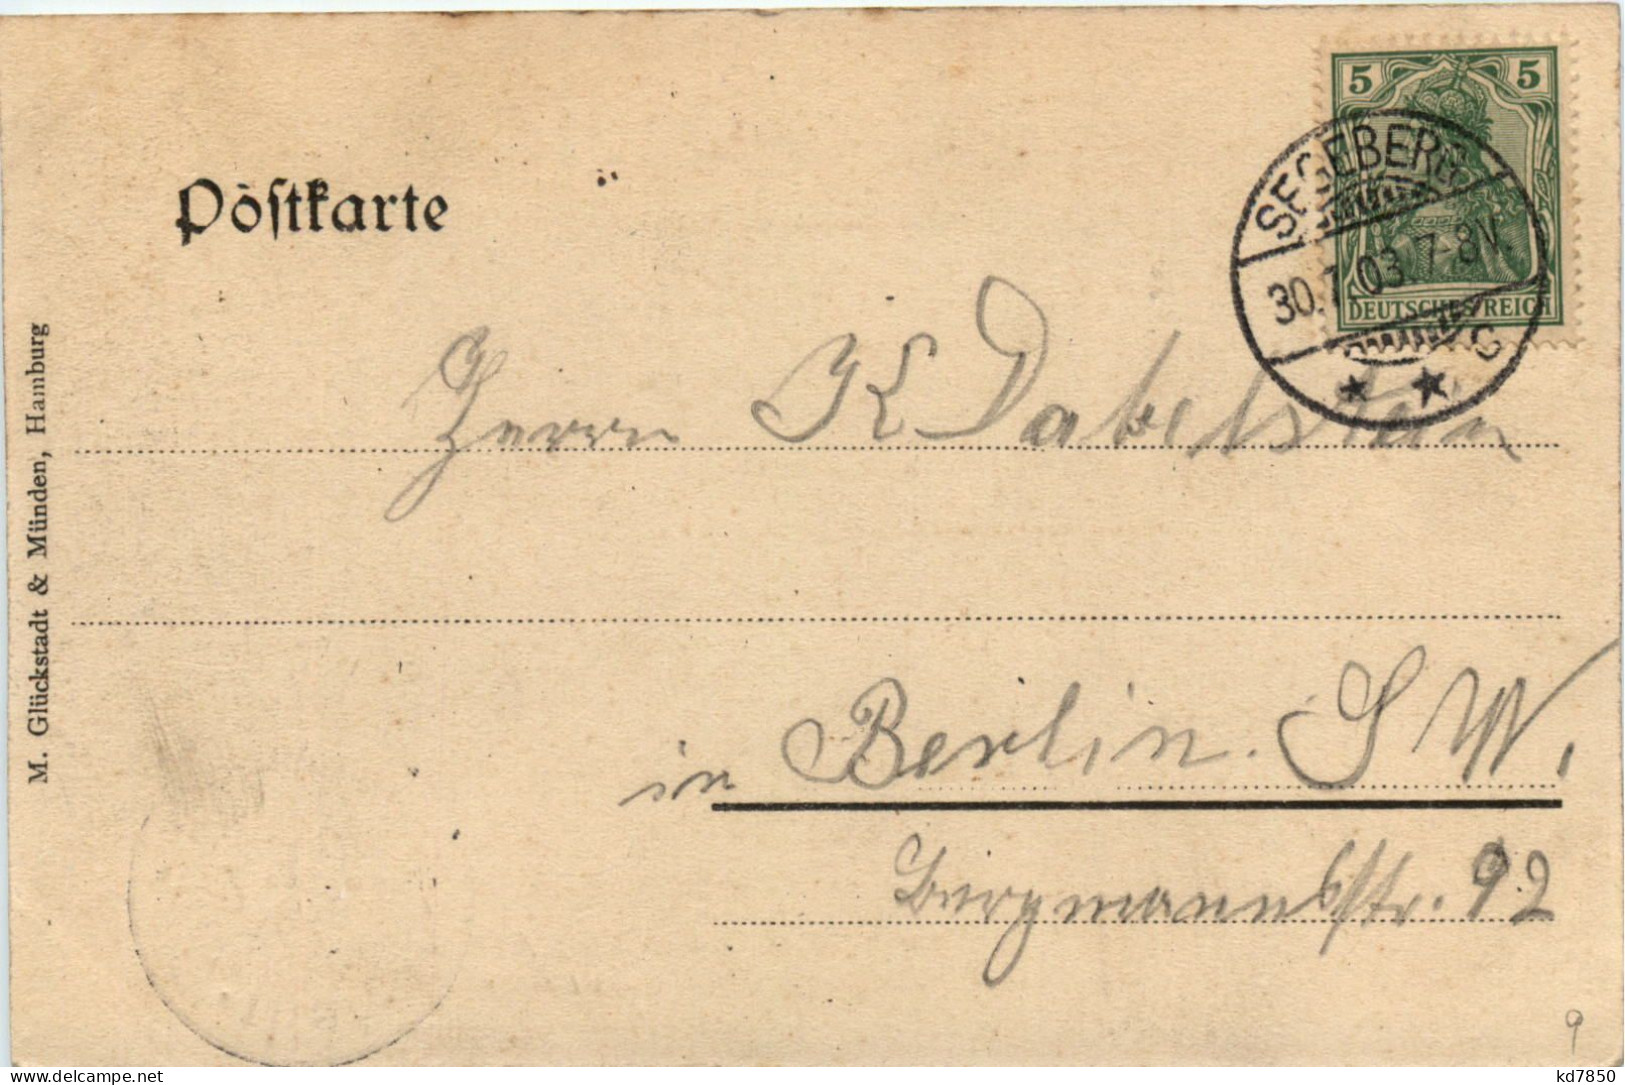 5 5
DEUTSCHES REICH
SEGEBERG
30. 7. 03. 7-8N.
C
Postkarte
M. Glückstadt & Münden, Hamburg
Herrn K Dabelstein
in Berlin. S W.
Bergmannstr. 92
9
kd7850